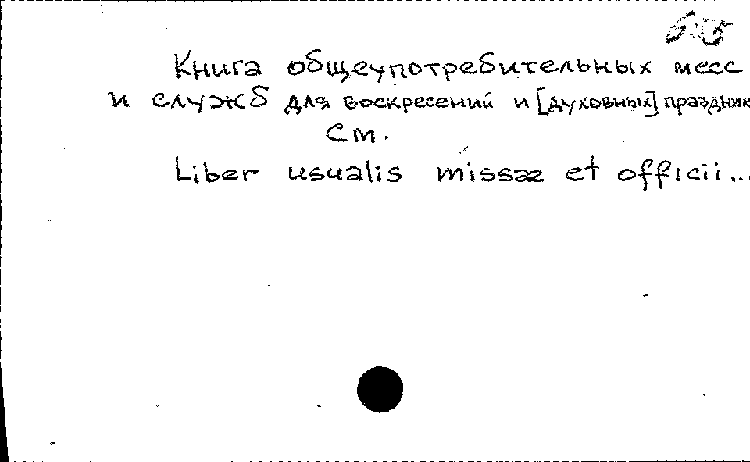 Книга общеупотребительных месс
и служб для воскресений и [духовных] праздник
См.
Liber usualis missae et officii...